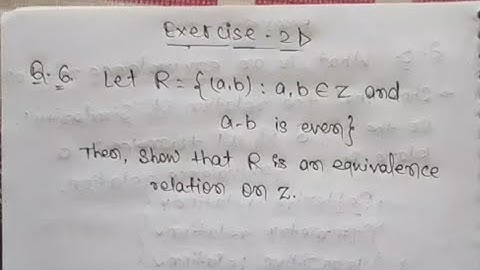 Exercise - 2D
Q.6. Let R = {(a,b) : a,b ∈ Z and
a-b is even}
Then, show that R is an equivalence
relation on Z.